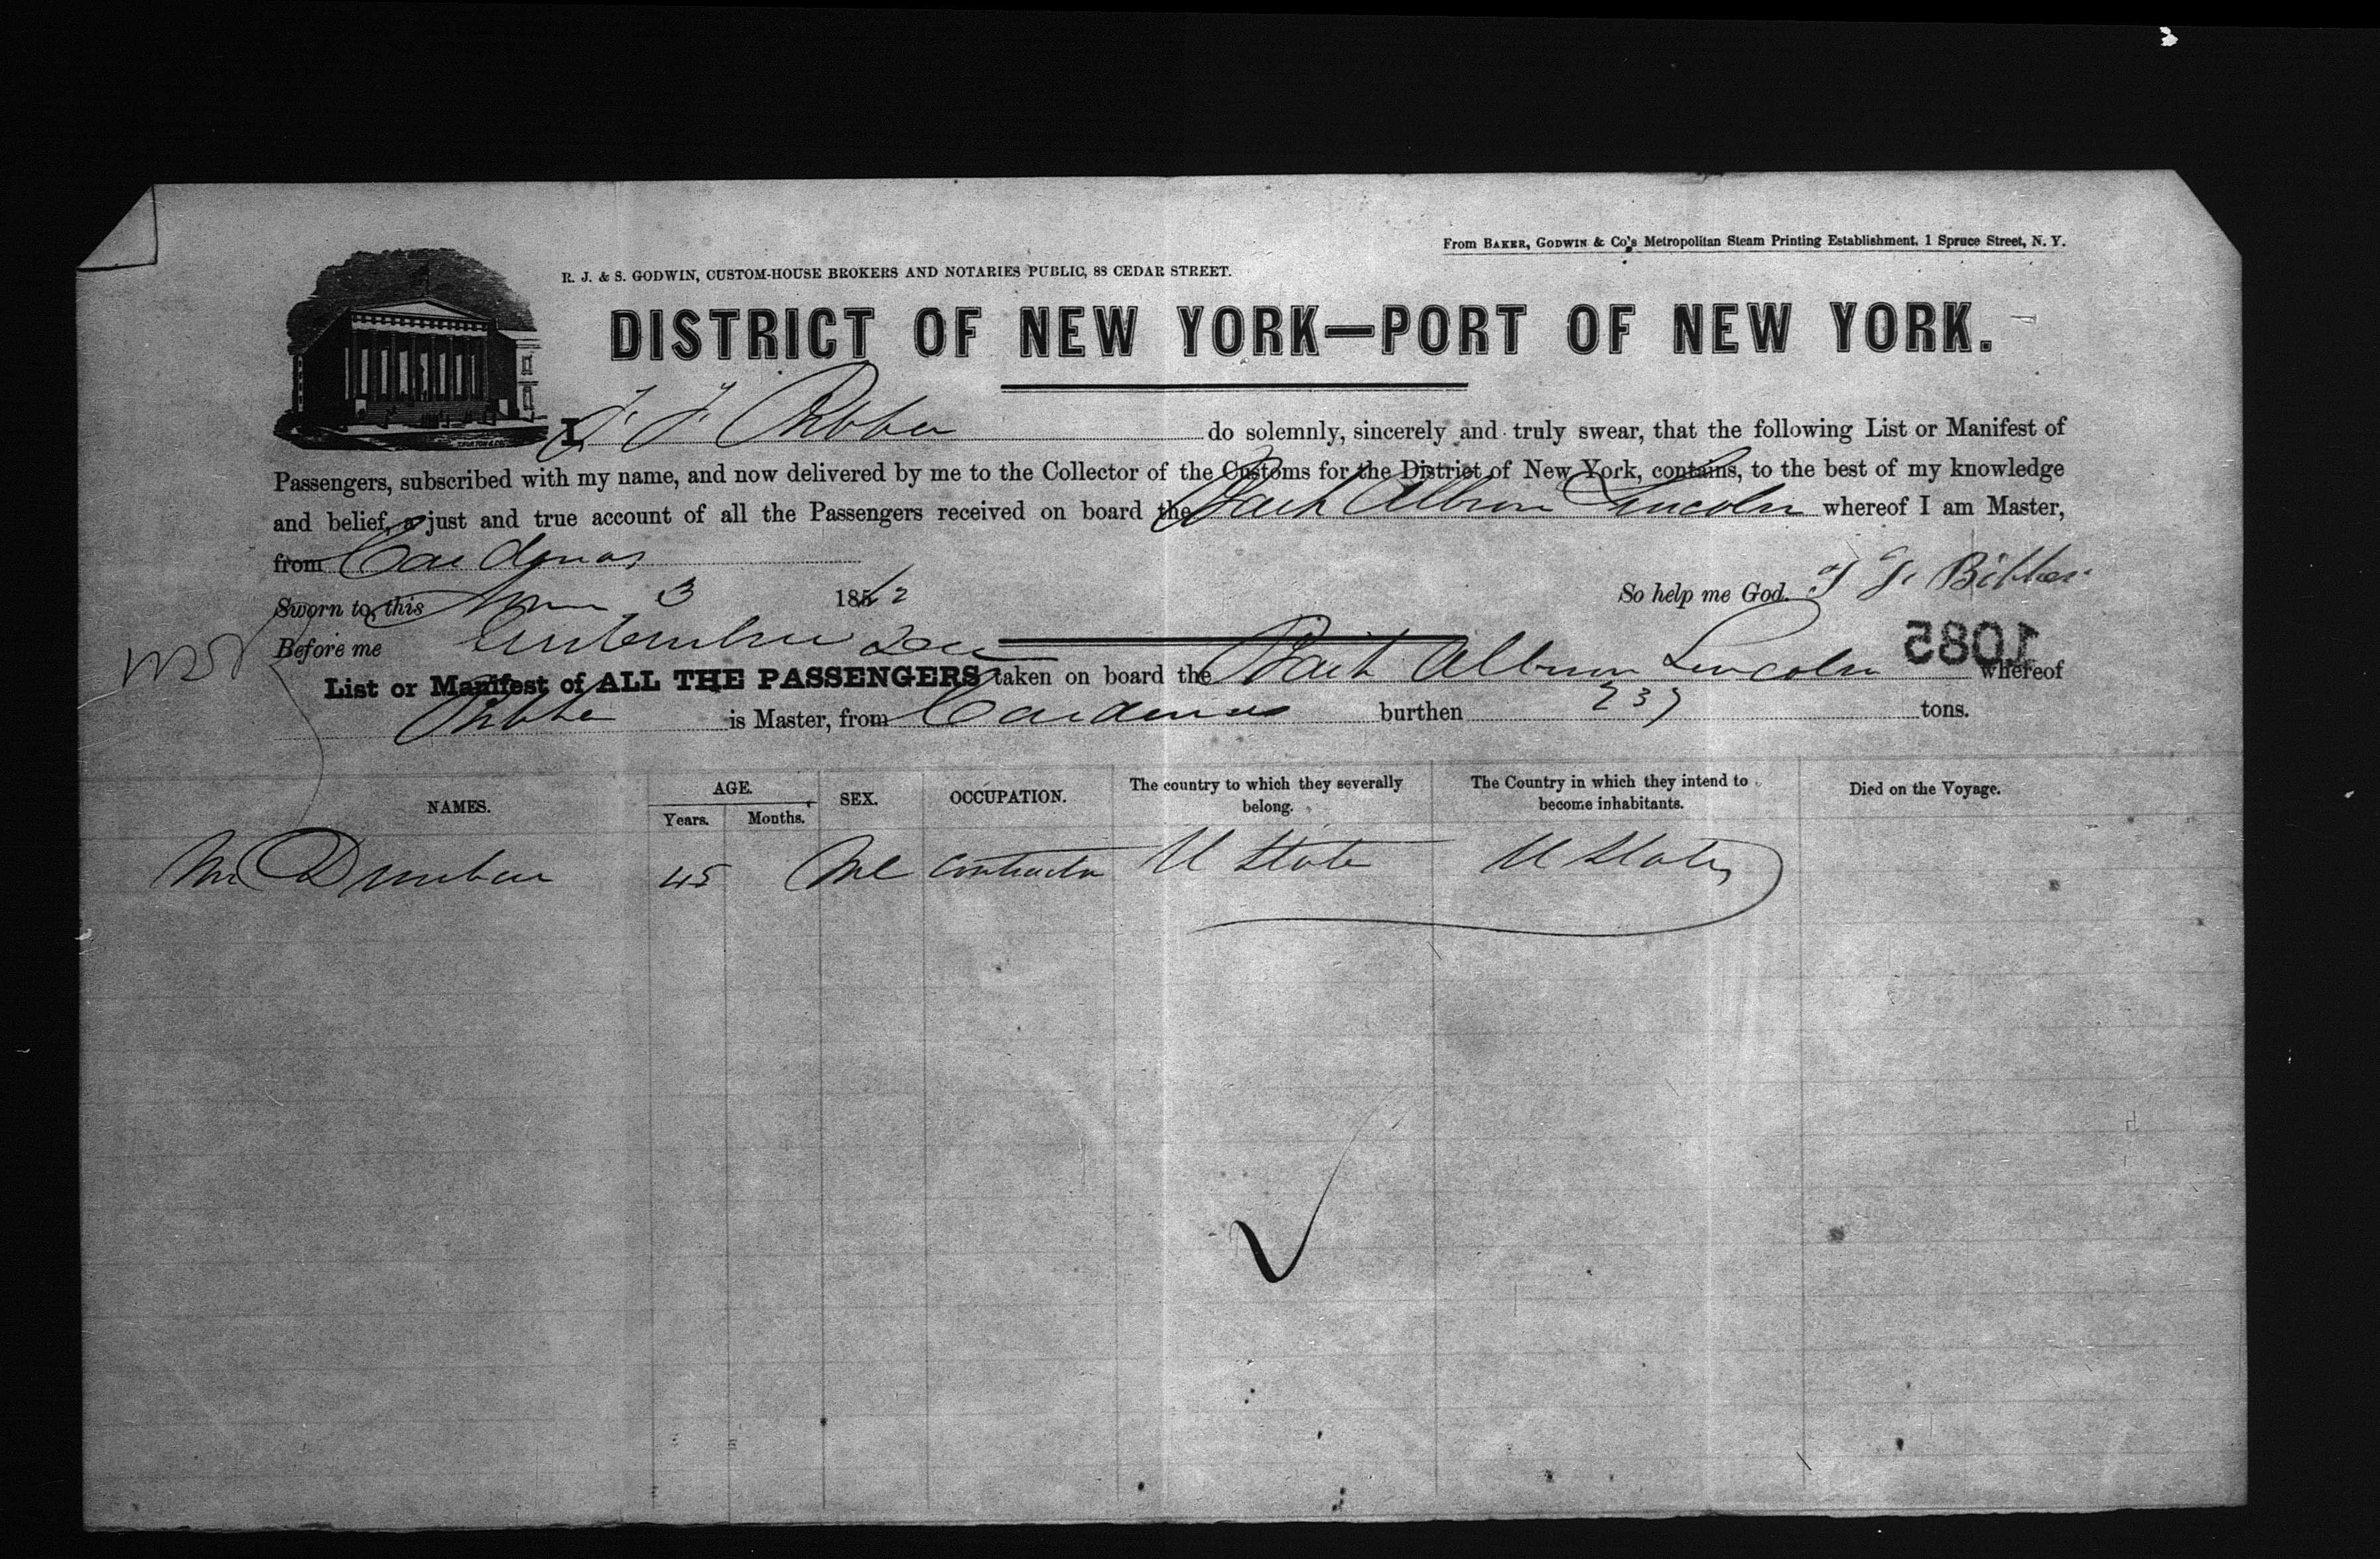 From BAKER, GODWIN & Co's Metropolitan Steam Printing Establishment, 1 Spruce Street, N. Y.
R. J. & S. GODWIN, CUSTOM-HOUSE BROKERS AND NOTARIES PUBLIC, 88 CEDAR STREET.
DISTRICT OF NEW YORK—PORT OF NEW YORK.
I, Bibber do solemnly, sincerely and truly swear, that the following List or Manifest of
Passengers, subscribed with my name, and now delivered by me to the Collector of the Customs for the District of New York, contains, to the best of my knowledge
and belief, a just and true account of all the Passengers received on board the Bark Albion Lincoln whereof I am Master,
from Cardenas
Sworn to this 3 1862 So help me God. Bibber
Before me
1085
List or Manifest of ALL THE PASSENGERS taken on board the Bark Albion Lincoln whereof
Bibber is Master, from Cardenas burthen 237 tons.
NAMES. AGE. Years. Months. SEX. OCCUPATION. The country to which they severally belong. The Country in which they intend to become inhabitants. Died on the Voyage.
Mr Dunbar 45 Ml Contractor U State U States